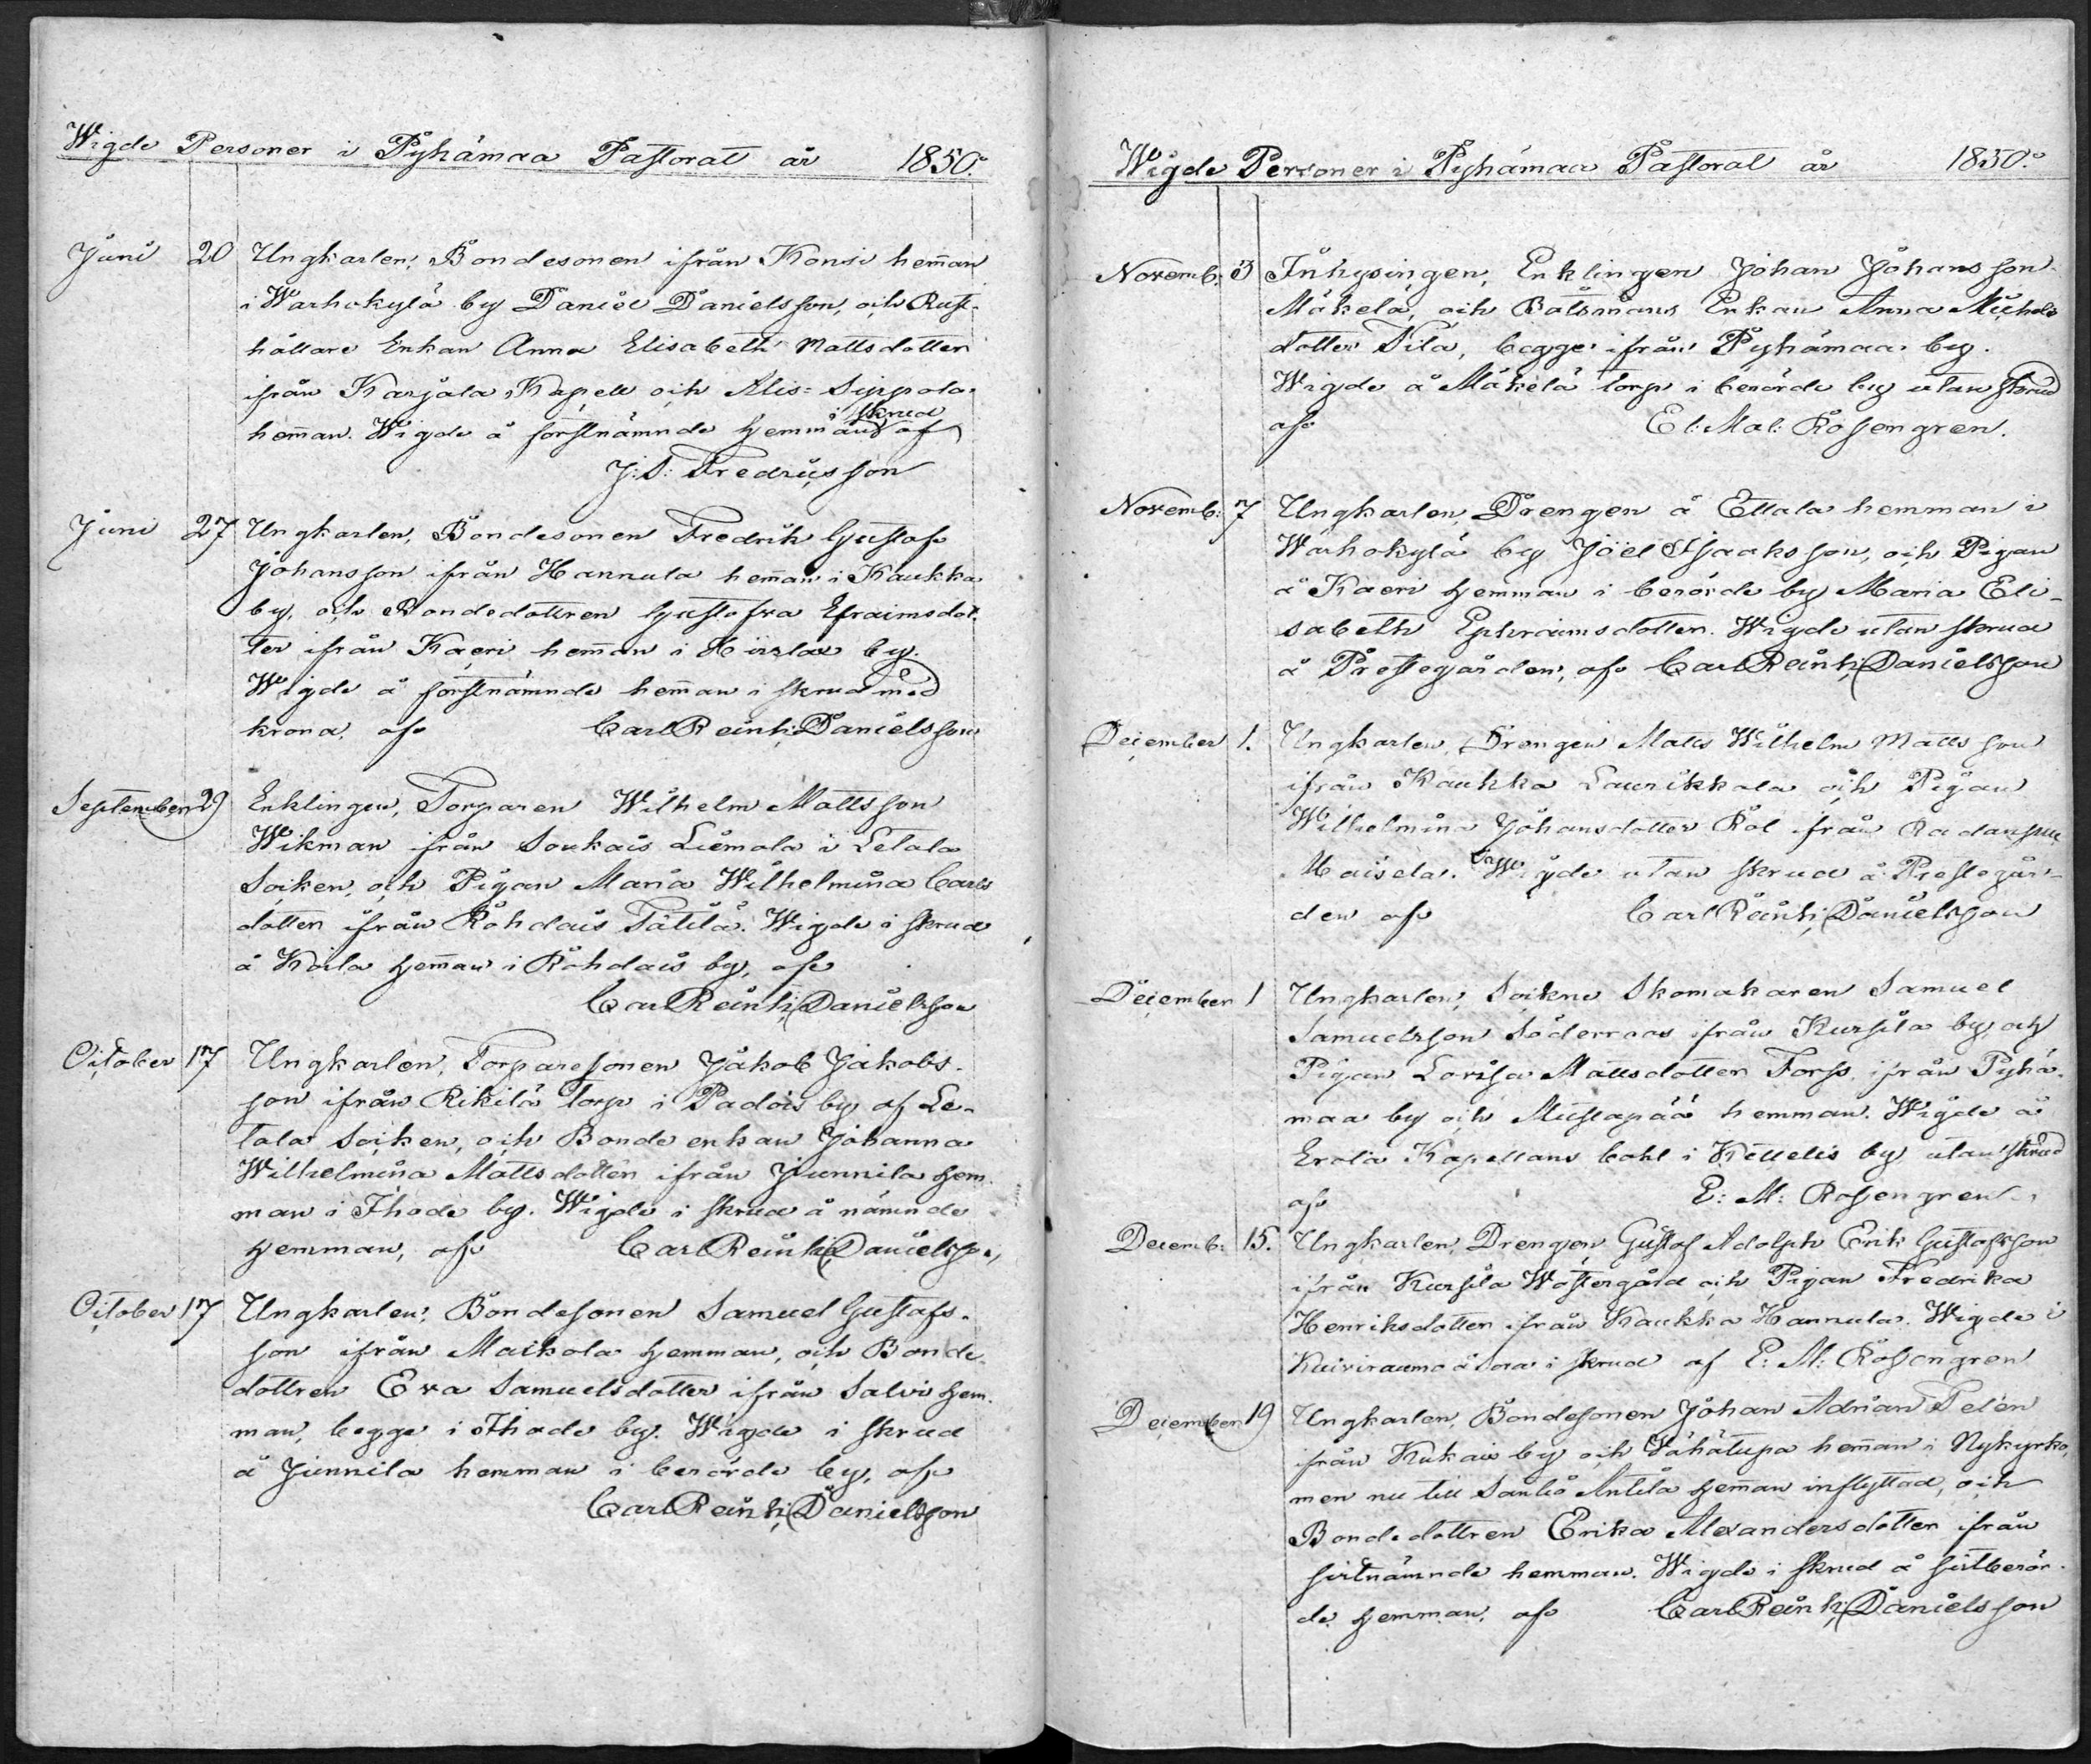 Wigde Personer i Pyhämaa Pastorat år 1850.
Juni 20 Ungkarlen, Bondesonen ifrån Konsi hem̄an
i Warhokylä by Daniel Danielsson, och Rust-
hållare Enkan Anna Elisabeth Mattsdotter
ifrån Karjala Kapell och Alis-Sippola
hem̄an. Wigde å förstnämnde hemman i skrud af
J: S: Fredricsson
Juni 27 Ungkarlen, Bondesonen Fredrik Gustaf
Johansson ifrån Hannula hem̄an i Kaukka
by, och Bondedottren Gustafva Efraimsdot-
ter ifrån Kaeri hem̄an i by.
Wigde å förstnämnde hem̄an i skrud med
krona, af Carl Reinh: Danielsson
September 29 Enklingen, Torparen Wilhelm Mattsson
Wikman ifrån Soukais Liemola i Letala
Socken, och Pigan Maria Wilhelmina Carls
dotter ifrån Rohdais Tätilä. Wigde i skrud
å Koila hem̄an i Rohdais by, af
Carl Reinh: Danielsson
October 17 Ungkarlen, Torparesonen Jakob Jakobs-
son ifrån Rikilä torp i Padois by af Le-
tala Socken, och Bonde enkan Johanna
Wilhelmina Mattsdotter ifrån Junnila hem-
man i Ihode by. Wigde i skrud å nämnde
hemman, af Carl Reinh: Danielsson
October 17 Ungkarlen, Bondesonen Samuel Gustafs-
son ifrån Maikola hemman, och Bonde-
dottren Eva Samuelsdotter ifrån Salvi hem-
man, begge i Ihode by. Wigde i skrud
å Junnila hemman i berörde by, af
Carl Reinh: Danielsson
Wigde Personer i Pyhämaa Pastorat år 1850.
Novemb: 3 Inhysingen, Enklingen Johan Johansson
Mäkelä, och Båtsmans Enkan Anna Michels
dotter Tila, begge ifrån Pyhämaa by.
Wigde å Mäkelä torp i berörde by utan skrud
af El: Mal: Rosengren.
Novemb: 7 Ungkarlen, Drengen å Ettala hemman i
Warhokylä by Joël Isaaksson, och Pigan
å Kaeri hemman i berörde by Maria Eli-
sabeth Ephraimsdotter. Wigde utan skrud
å Prestegården, af Carl Reinh: Danielsson
December 1. Ungkarlen, Drengen Matts Wilhelm Matts son
ifrån Kaukka Laurikkala och Pigan
Wilhelmina Johansdotter Rol ifrån
Wigde utan skrud å Prestegår-
den af Carl Reinh: Danielsson
December 1 Ungkarlen, Sockne Skomakaren Samuel
Samuelsson Söderroos ifrån Kursila by och
Pigan Lovisa Mattsdotter Forss ifrån Pyhä-
maa by och Mustapää hemman. Wigde å
Erola Kapellans bohl i Kettelis by utan skrud
af E: M: Rosengren.
Decemb: 15. Ungkarlen, Drengen Gustaf Adolph Erik Gustafsson
ifrån Kursila Wästergård och Pigan Fredrika
Henriksdotter ifrån Kaukka Hannula. Wigde i
Kuiviraumo i skrud af E: M: Rosengren
December 19 Ungkarlen, Bondesonen Johan Adrian Telén
ifrån Kukais by och Vähätupa hem̄an i Nykyrko,
men nu till Santio Antila hem̄an inflyttad, och
Bondedottren Erika Alexandersdotter ifrån
sistnämnde hemman. Wigde i skrud å sistberör-
de hemman, af Carl Reinh: Danielsson